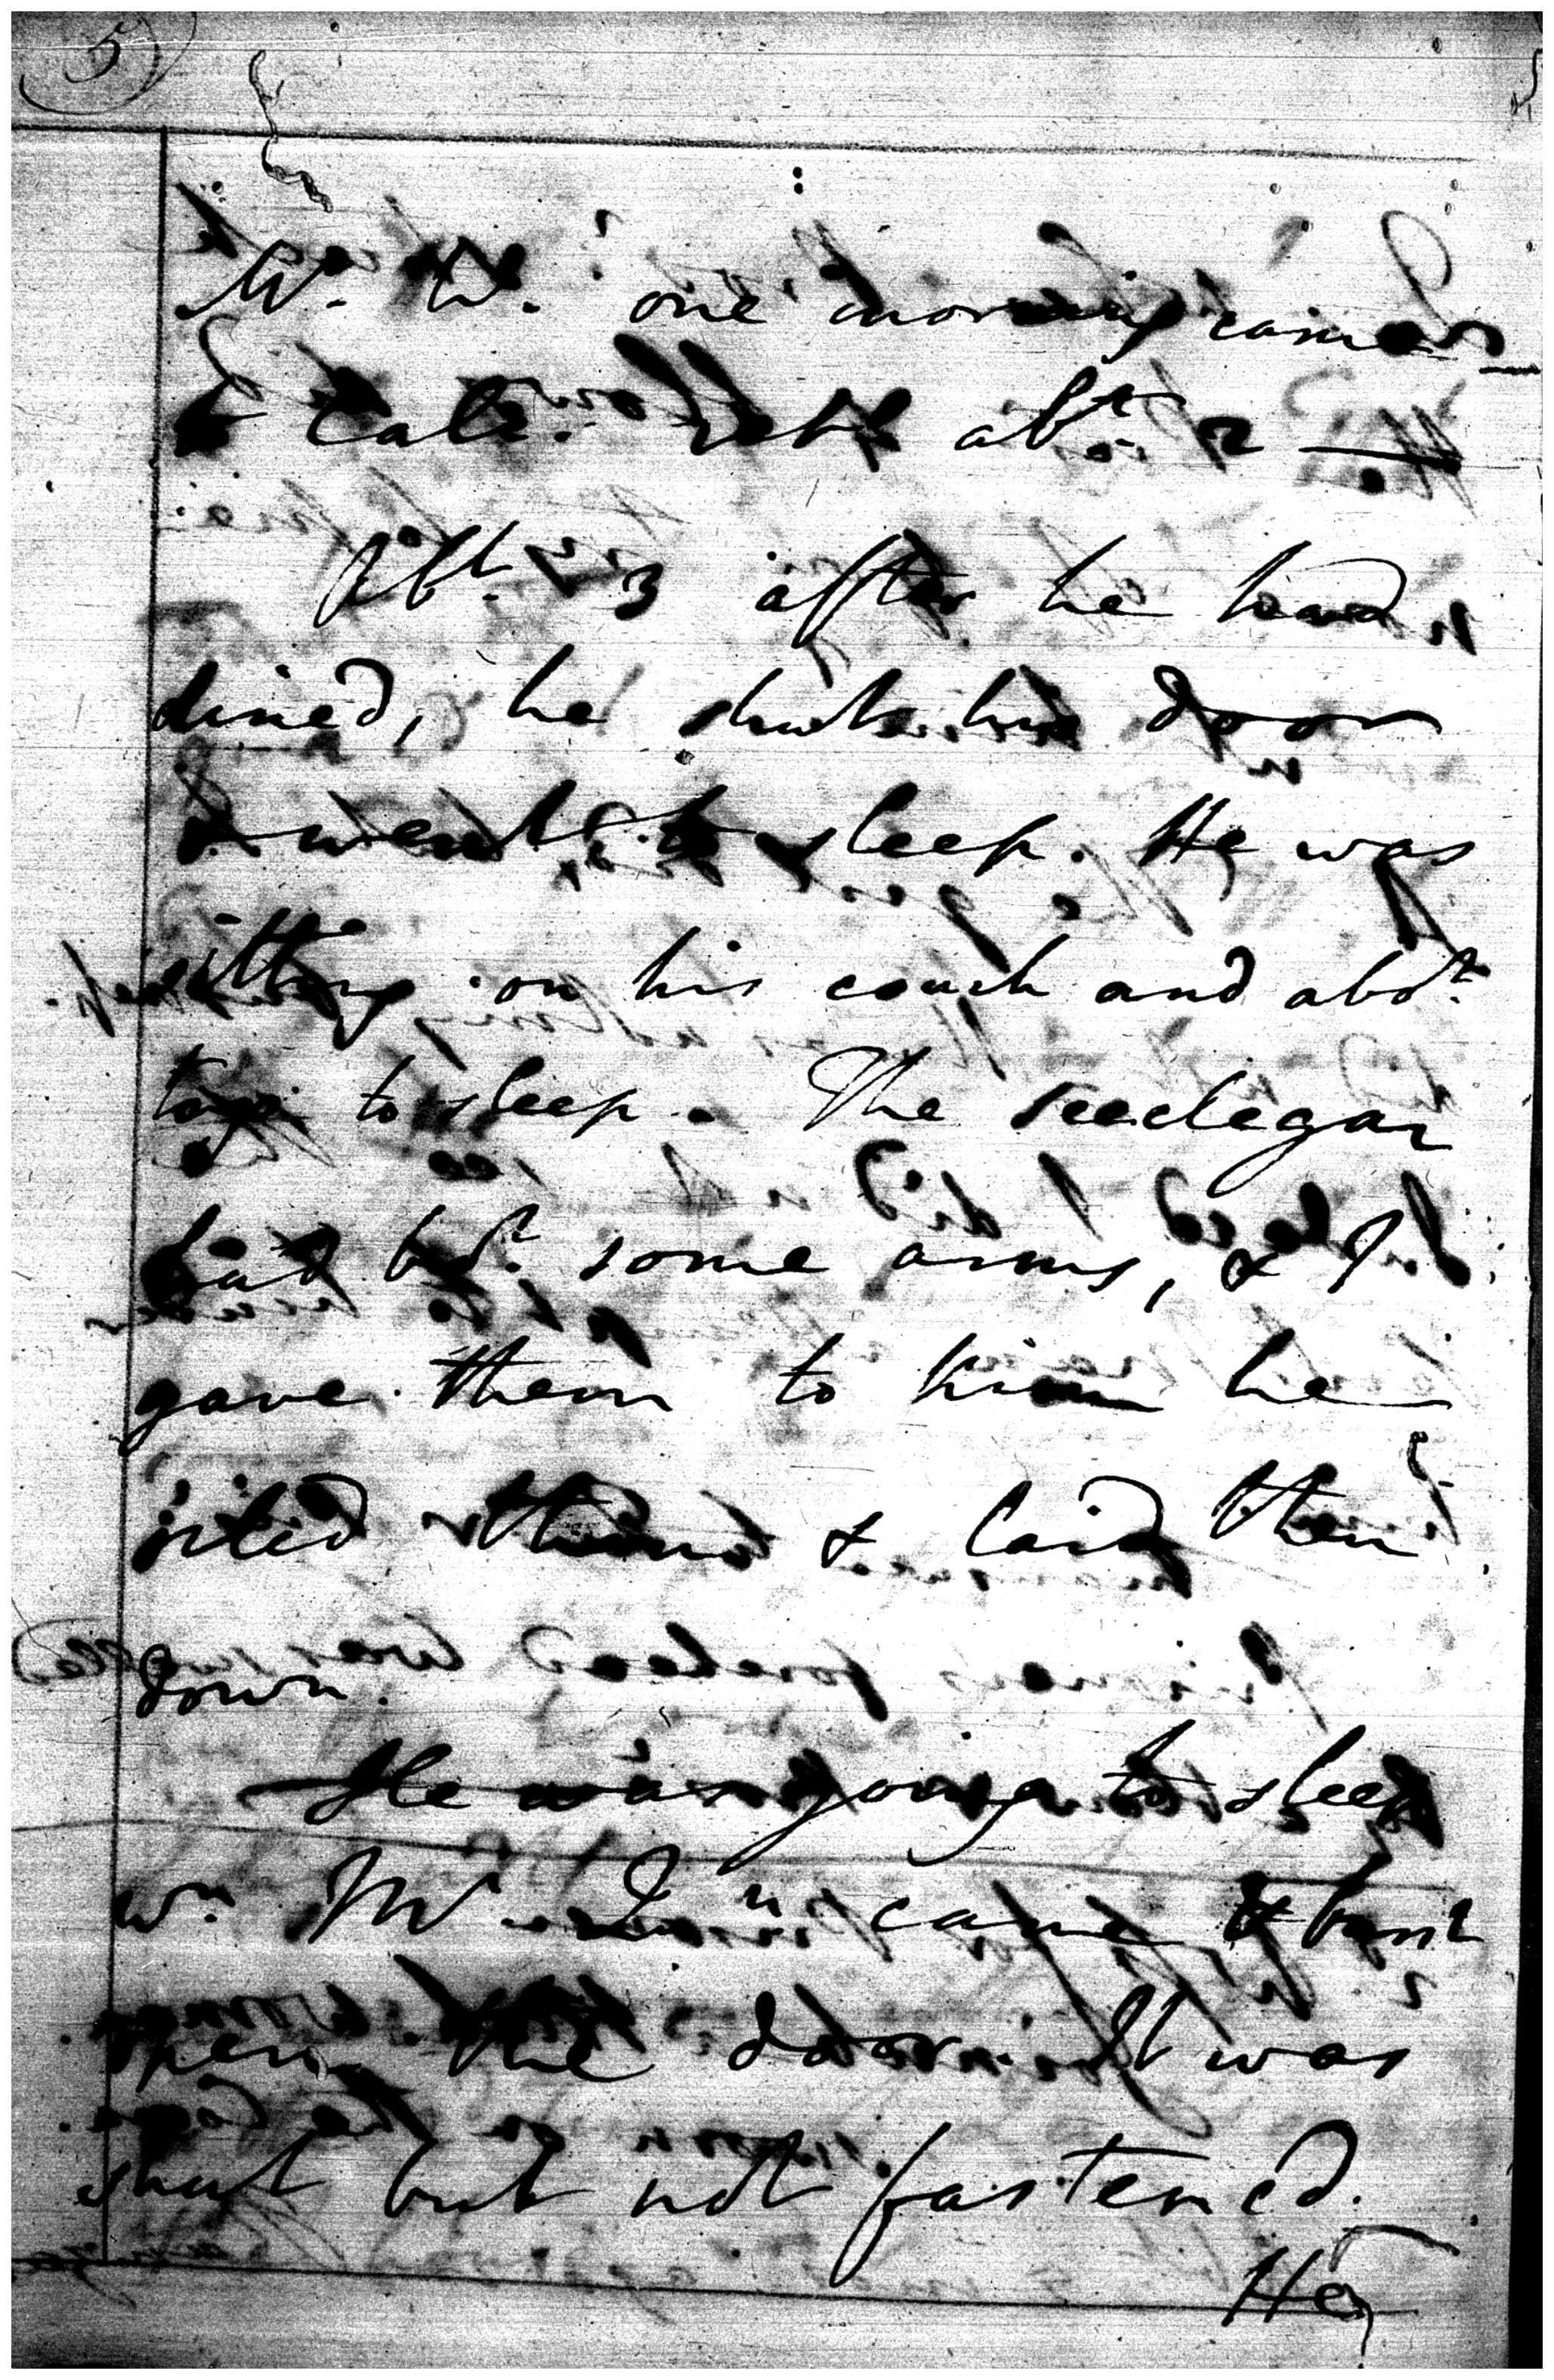 5
Mr. W. one morning came
to Calc. abt. 2 —
Abt. 3 after he had
dined, he shut his door
& went to sleep. He was
sitting on his couch and abot.
to go to sleep. The seedegar
had bot. some arms, & I
gave them to him he
oiled them & laid them
down.
He was going to sleep
wn. Mr came & burst
open the door. It was
shut but not fastened.
He